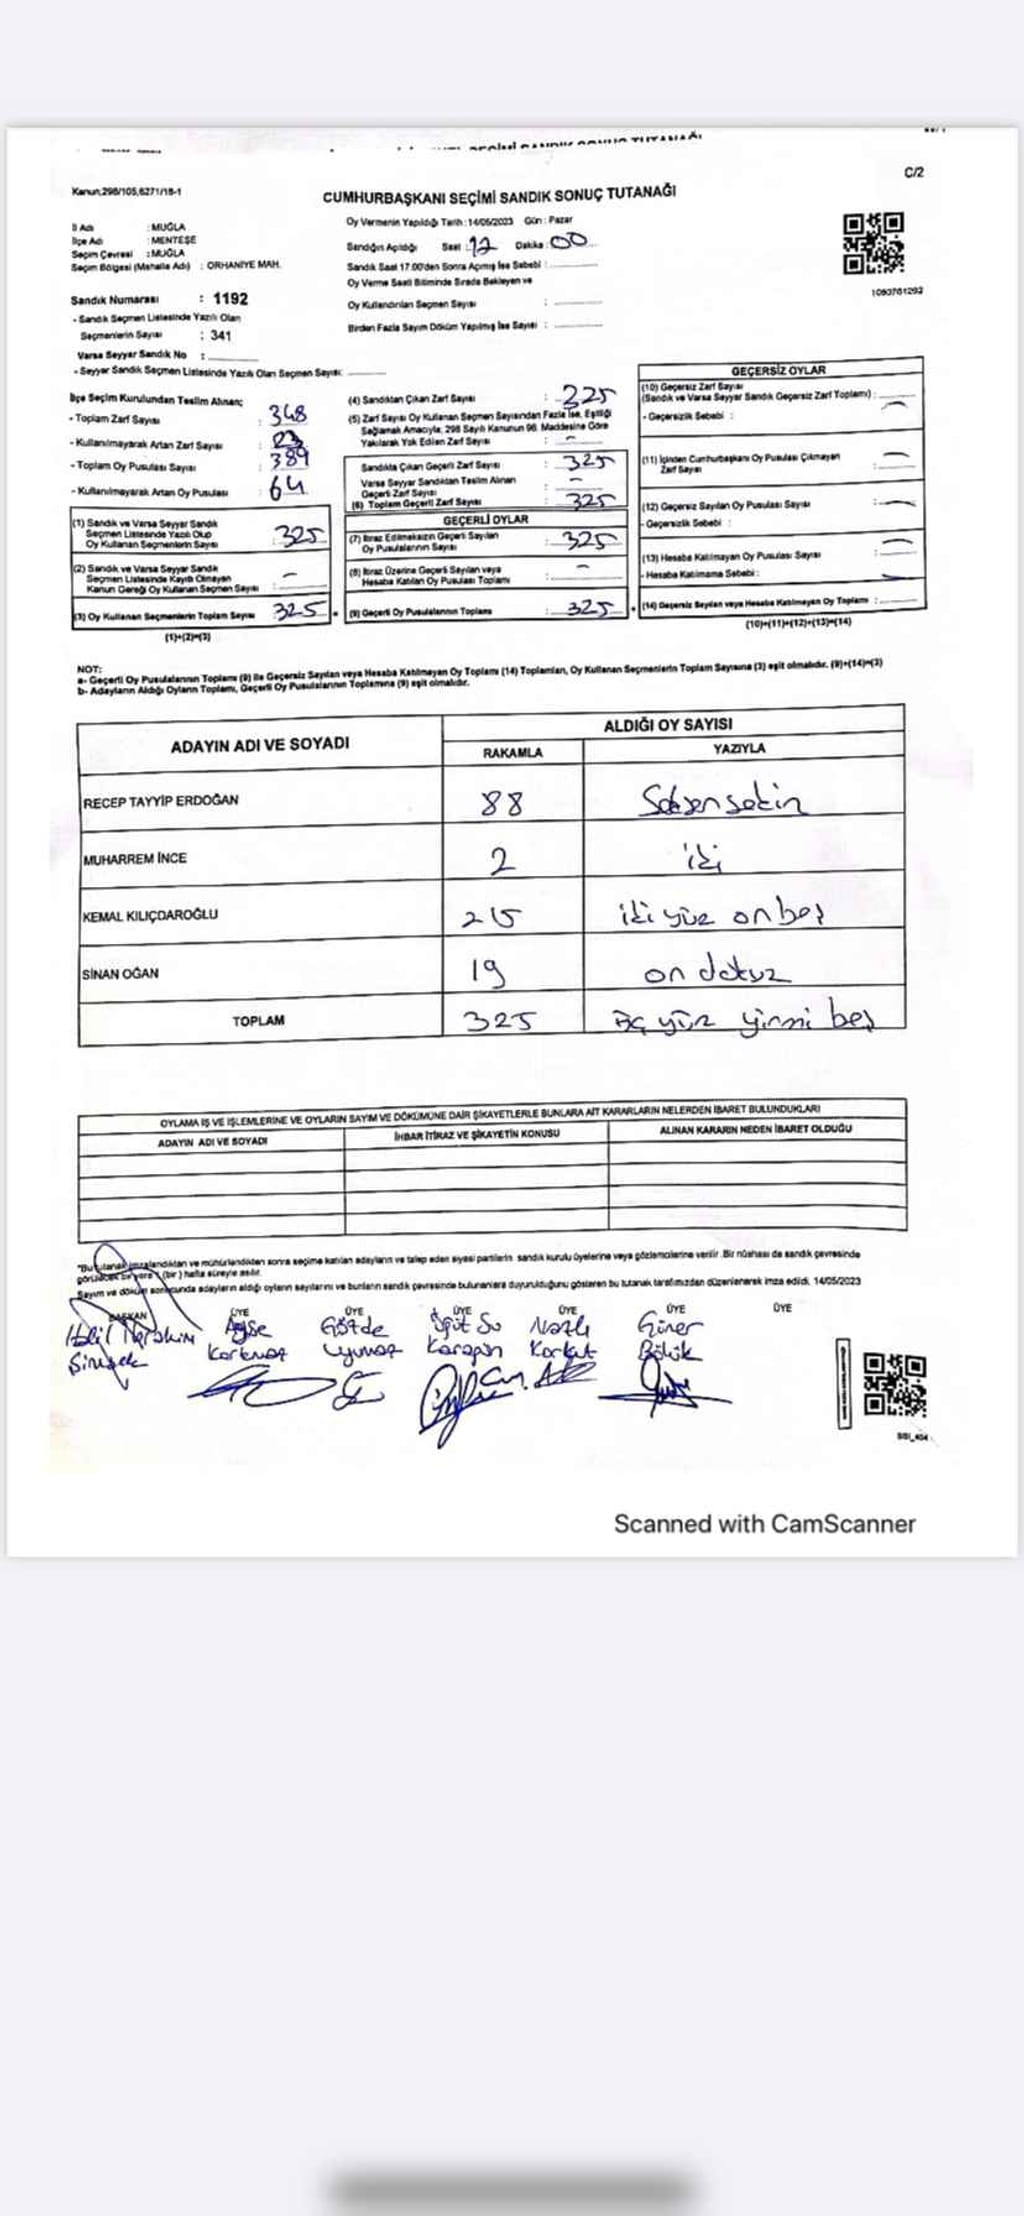 C/2
Kanun;298/105,6271/18-1
CUMHURBAŞKANI SEÇİMİ SANDIK SONUÇ TUTANAĞI
İl Adı : MUĞLA
İlçe Adı : MENTEŞE
Seçim Çevresi : MUĞLA
Seçim Bölgesi (Mahalle Adı) : ORHANİYE MAH.
Oy Vermenin Yapıldığı Tarih : 14/05/2023 Gün : Pazar
Sandığın Açıldığı Saat : 17 Dakika : 00
Sandık Saat 17.00'den Sonra Açmış İse Sebebi :
Oy Verme Saati Bitiminde Sırada Bekleyen ve
Oy Kullandırılan Seçmen Sayısı :
Birden Fazla Sayım Döküm Yapılmış İse Sayısı :
1093761292
Sandık Numarası : 1192
- Sandık Seçmen Listesinde Yazılı Olan
Seçmenlerin Sayısı : 341
Varsa Seyyar Sandık No :
- Seyyar Sandık Seçmen Listesinde Yazılı Olan Seçmen Sayısı:
İlçe Seçim Kurulundan Teslim Alınan;
- Toplam Zarf Sayısı : 348
- Kullanılmayarak Artan Zarf Sayısı : 23
- Toplam Oy Pusulası Sayısı : 389
- Kullanılmayarak Artan Oy Pusulası : 64
(1) Sandık ve Varsa Seyyar Sandık
Seçmen Listesinde Yazılı Olup
Oy Kullanan Seçmenlerin Sayısı : 325
(2) Sandık ve Varsa Seyyar Sandık
Seçmen Listesinde Kayıtlı Olmayan
Kanun Gereği Oy Kullanan Seçmen Sayısı : -
(3) Oy Kullanan Seçmenlerin Toplam Sayısı : 325
(1)+(2)=(3)
(4) Sandıktan Çıkan Zarf Sayısı : 325
(5) Zarf Sayısı Oy Kullanan Seçmen Sayısından Fazla İse, Eşitliği
Sağlamak Amacıyla, 298 Sayılı Kanunun 98. Maddesine Göre
Yakılarak Yok Edilen Zarf Sayısı : -
Sandıkta Çıkan Geçerli Zarf Sayısı : 325
Varsa Seyyar Sandıktan Teslim Alınan
Geçerli Zarf Sayısı : -
(6) Toplam Geçerli Zarf Sayısı : 325
GEÇERLİ OYLAR
(7) İtiraz Edilmeksizin Geçerli Sayılan
Oy Pusulalarının Sayısı : 325
(8) İtiraz Üzerine Geçerli Sayılan veya
Hesaba Katılan Oy Pusulası Toplamı : -
(9) Geçerli Oy Pusulalarının Toplamı : 325
GEÇERSİZ OYLAR
(10) Geçersiz Zarf Sayısı
(Sandık ve Varsa Seyyar Sandık Geçersiz Zarf Toplamı) : -
- Geçersizlik Sebebi :
(11) İçinden Cumhurbaşkanı Oy Pusulası Çıkmayan
Zarf Sayısı : -
(12) Geçersiz Sayılan Oy Pusulası Sayısı : -
- Geçersizlik Sebebi :
(13) Hesaba Katılmayan Oy Pusulası Sayısı : -
- Hesaba Katılmama Sebebi :
(14) Geçersiz Sayılan veya Hesaba Katılmayan Oy Toplamı : -
(10)+(11)+(12)+(13)=(14)
NOT:
a- Geçerli Oy Pusulalarının Toplamı (9) ile Geçersiz Sayılan veya Hesaba Katılmayan Oy Toplamı (14) Toplamları, Oy Kullanan Seçmenlerin Toplam Sayısına (3) eşit olmalıdır. (9)+(14)=(3)
b- Adayların Aldığı Oyların Toplamı, Geçerli Oy Pusulalarının Toplamına (9) eşit olmalıdır.
ADAYIN ADI VE SOYADI ALDIĞI OY SAYISI
RAKAMLA YAZIYLA
RECEP TAYYİP ERDOĞAN 88 Seksen sekiz
MUHARREM İNCE 2 iki
KEMAL KILIÇDAROĞLU 215 iki yüz on beş
SİNAN OĞAN 19 on dokuz
TOPLAM 325 üç yüz yirmi beş
OYLAMA İŞ VE İŞLEMLERİNE VE OYLARIN SAYIM VE DÖKÜMÜNE DAİR ŞİKAYETLERLE BUNLARA AİT KARARLARIN NELERDEN İBARET BULUNDUKLARI
ADAYIN ADI VE SOYADI İHBAR İTİRAZ VE ŞİKAYETİN KONUSU ALINAN KARARIN NEDEN İBARET OLDUĞU
"Bu tutanak imzalandıktan ve mühürlendikten sonra seçime katılan adayların ve talep eden siyasi partilerin sandık kurulu üyelerine veya gözlemcilerine verilir. Bir nüshası de sandık çevresinde
görülecek bir yere 1 (bir) hafta süreyle asılır.
Sayım ve döküm sonucunda adayların aldığı oyların sayılarını ve bunların sandık çevresinde bulunanlara duyurulduğunu gösteren bu tutanak tarafımızdan düzenlenerek imza edildi. 14/05/2023
BAŞKAN ÜYE ÜYE ÜYE ÜYE ÜYE ÜYE
Halil İbrahim Ayşe Gözde Öğüt Su Nazlı Güner
Şimşek Korkmaz Uymaz Karapın Korkut Bölük
Scanned with CamScanner